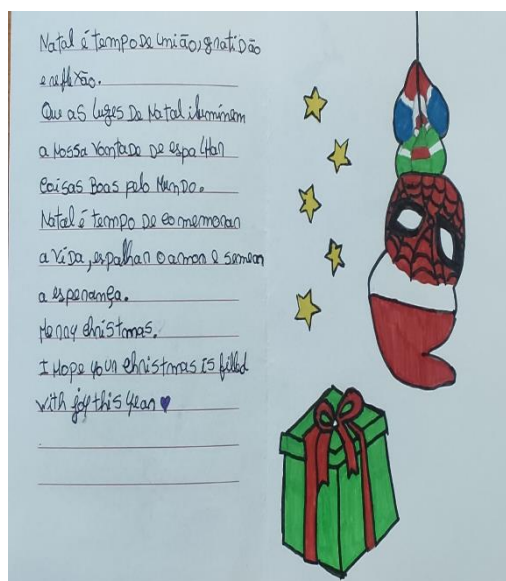 Natal é tempo de união, gratidão
e reflexão.
Que as luzes do Natal iluminem
a nossa vontade de espalhar
coisas boas pelo mundo.
Natal é tempo de comemorar
a vida, espalhar o amor e semear
a esperança.
Merry christmas.
I Hope your christmas is filled
with joy this year ♥